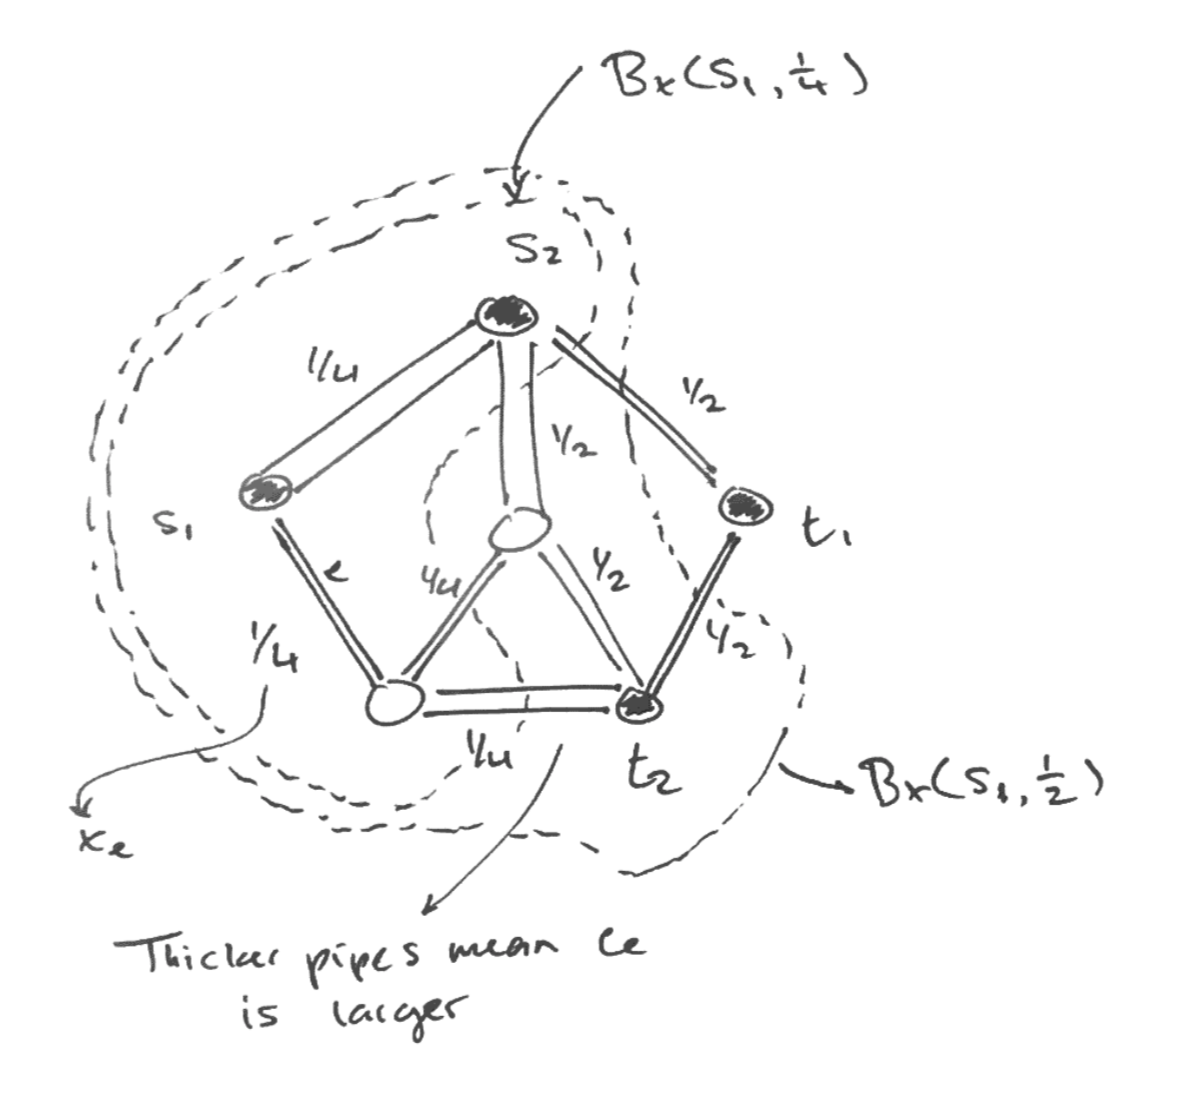 Bx(S1, 1/4)
S2
1/4
1/2
1/2
S1
t1
e
1/4
1/2
1/4
1/2
1/4
t2
Bx(S1, 1/2)
xe
Thicker pipes mean ce
is larger